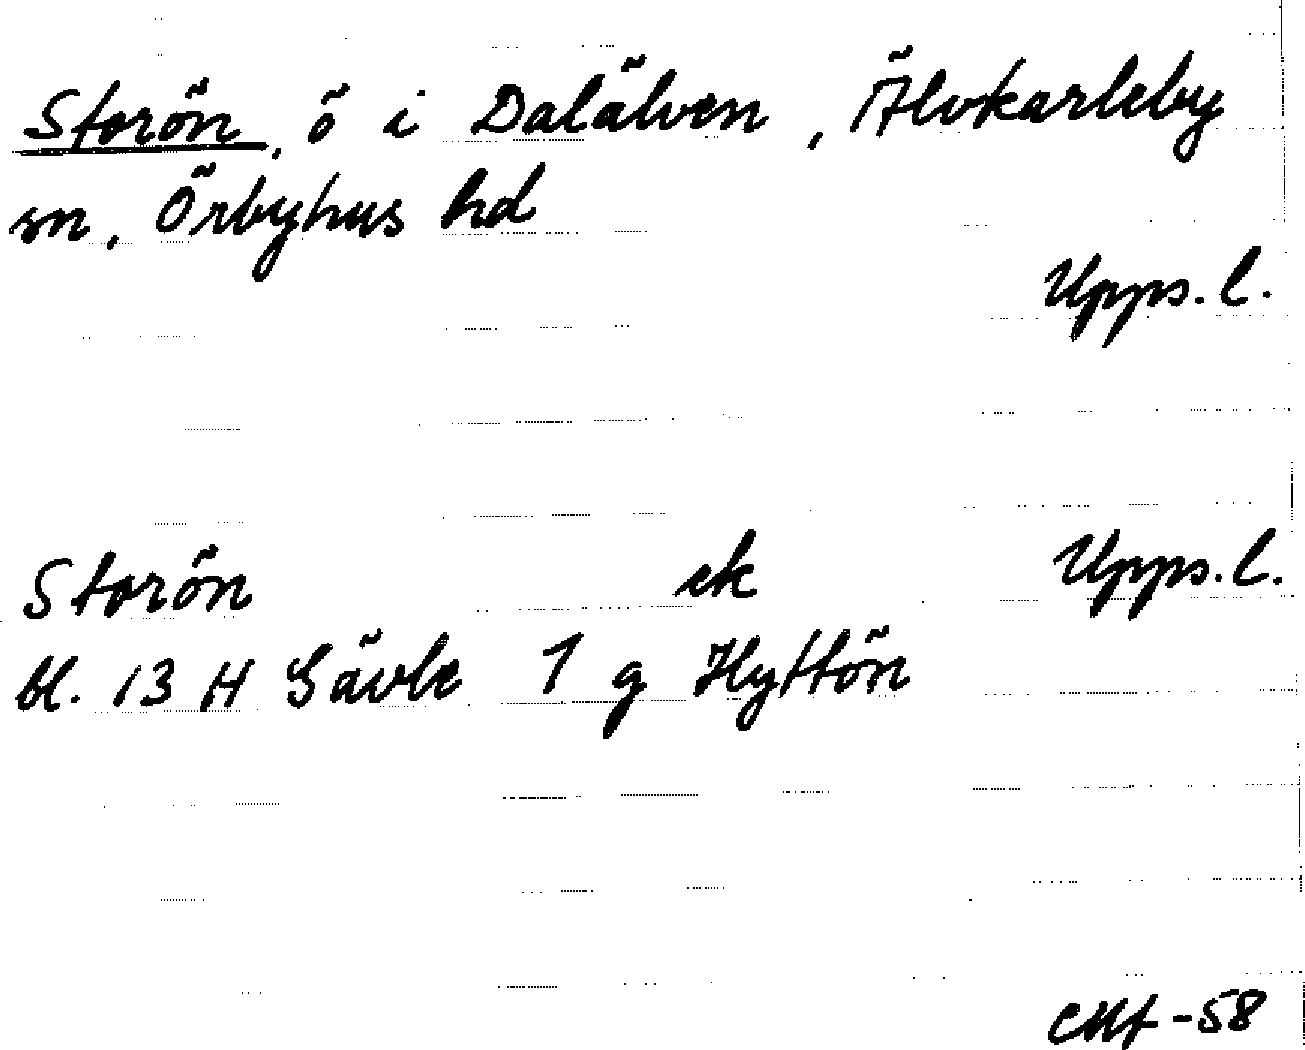 Storön, ö i Dalälven, Älvkarleby
sn, Örbyhus hd
Upps. l.
Storön ek Upps. l.
bl. 13 H Gävle 1 g Hyttön
-58